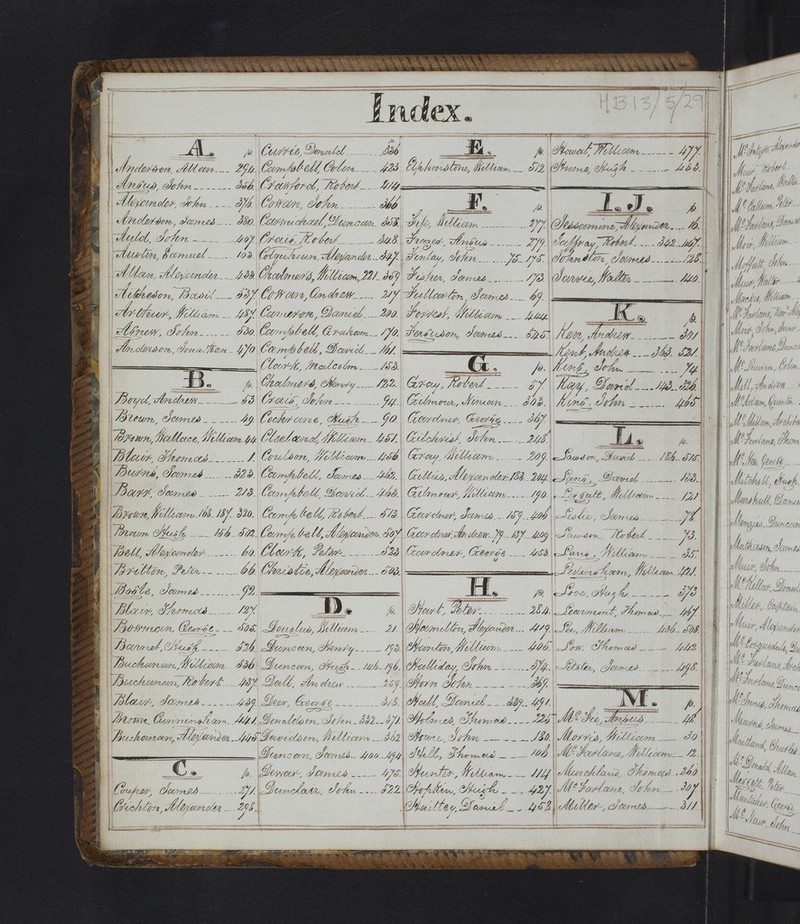 Index.
HB13/5/29
A. p
Anderson, Allan 294
Angus, John 356
Alexander, John 376
Anderson, James 380
Auld, John 407
Austin, Samuel 103
Allan, Alexander 433
Aitcheson, Basil 527
Arthur, William 487
Agnew, John 530
Anderson, Jonathan 470
B. p.
Boyd, Andrew 53
Brown, James 49
Brown, Wallace, William 44
Blair, Thomas 1
Burns, James 323
Barr, James 213
Brown, William 168. 187. 320.
Brown Hugh 156. 502
Bell, Alexander 60
Britton, Peter 66
Boyle, James 92
Blair, Thomas 127
Bowman, George 505
Barnet, Hugh 526
Buchanan, William 536
Buchanan, Robert 437
Blair, James 439
Brown, Cunningham 441
Buchanan, Alexander 445
C. p.
Couper, James 271
Crichton, Alexander 298
p.
Currie, Donald 336
Campbell, Colin 423
Crawford, Robert 414
Cowan, John 366
Carmichael, Duncan 358
Craig, Robert 348
Colquhoun, Alexander 347
Chalmers, William, 221. 369
Cowan, Andrew 217
Cameron, Daniel 200
Campbell, Graham 170
Campbell, David 161
Clark, Malcolm 153
Chalmers, Henry 122
Craig, John 94
Cochrane, Hugh 90
Cleeland, William 451
Coulson, William 456
Campbell, James 462
Campbell, David 463
Campbell, Robert 513
Campbell, Alexander 507
Clark, Peter 523
Christie, Alexander 503
D. p.
Douglas, William 21
Duncan, Henry 193
Duncan, Hugh 146. 196
Dall, Andrew 259
Deer, George 318
Donaldson, John 332. 371
Davidson, William 362
Duncan, James 400. 494
Dewar, James 475
Dunclair, John 522
E. p.
Elphinstone, William 512
F. p.
Fife, William 277
Frazer, Angus 279
Finlay, John 75. 175
Fisher, James 173
Fullarton, James 69
Forrest, William 444
Ferguson, James 545
G. p.
Gray, Robert 57
Gilmour, Ninian 303
Gardner, George 367
Gilchrist, John 248
Gray, William 209
Gillies, Alexander 183. 204
Gilmour, William 190
Gardner, James 159. 406
Gardner, Andrew 79. 137. 409
Gardner, George 453
H. p.
Hart, Peter 284
Hamilton, Alexander 419
Hanton, William 405
Halliday, John 374
Horn John 369
Hall, Daniel 339. 491
Holmes, Thomas 225
Howe, John 180
Hill, Thomas 106
Hunter, William 114
Hopkin, Hugh 427
Hailtey, Daniel 458
Howat, William 477
Hume, Hugh 483
I. J. p
Jessamine, Alexander 16
Jaffray, Robert 342. 467
Johnston, James 125
Jarvie, Walter 140
K. p.
Kerr, Andrew 301
Kent, Andrew 363. 521
King, John 74
Kay, David 143. 326
King, John 465
L. p.
Lawson, David 186. 515
Lang, David 123
Leggatt, William 121
Leslie, James 78
Lawson, Robert 73
Lang, William 35
Levingham, William 421
Love, Hugh 373
Learmont, Thomas 467
Lee, William 436. 508
Low, Thomas 442
Lister, James 498
M. p.
McFie, Angus 48
Morris, William 30
McFarlane, William 12
Murchland, Thomas 260
McFarlane, John 307
Miller, James 311
McIntyre Alexander
Muir, Robert
McFarlane, Walter
McCallum, Peter
McFarlane, Daniel
Moir, William
Moffatt, John
Muir, Walter
Morris, William
Muir, John
McFarlane, Duncan
McAdam, Quintin
McFarlane, Thomas
McNee George
Mitchell, Hugh
Marshall, Daniel
Menzies, Duncan
Mathieson, James
Muir, John
McKellar, Donald
Miller, Captain
Muir, Alexander
McFarlane, Arch
McFarlane, Duncan
McInnes, Thomas
Mearns, James
Maitland, Charles
McDonald, Allan
Moffatt, Peter
McNair, John